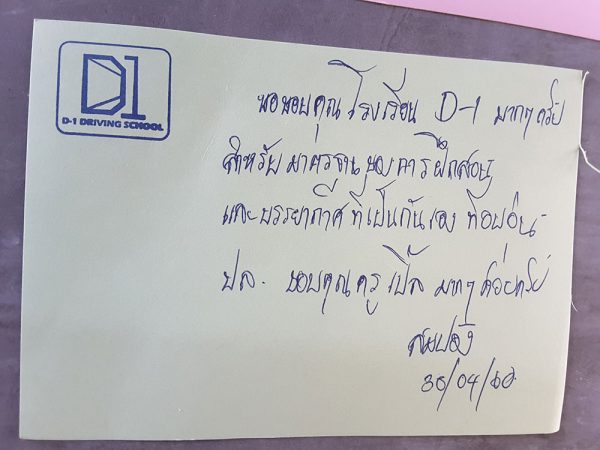 D1
D-1 DRIVING SCHOOL
ขอขอบคุณ โรงเรียน D-1 มากๆ ครับ
สำหรับ มาตรฐาน ของ การ ฝึกสอน
และ บรรยากาศ ที่เป็นกันเอง ที่อบอุ่น
ปล. ขอบคุณ ครู เปิ้ล มากๆ ด้วยครับ
สมปอง
30/04/60